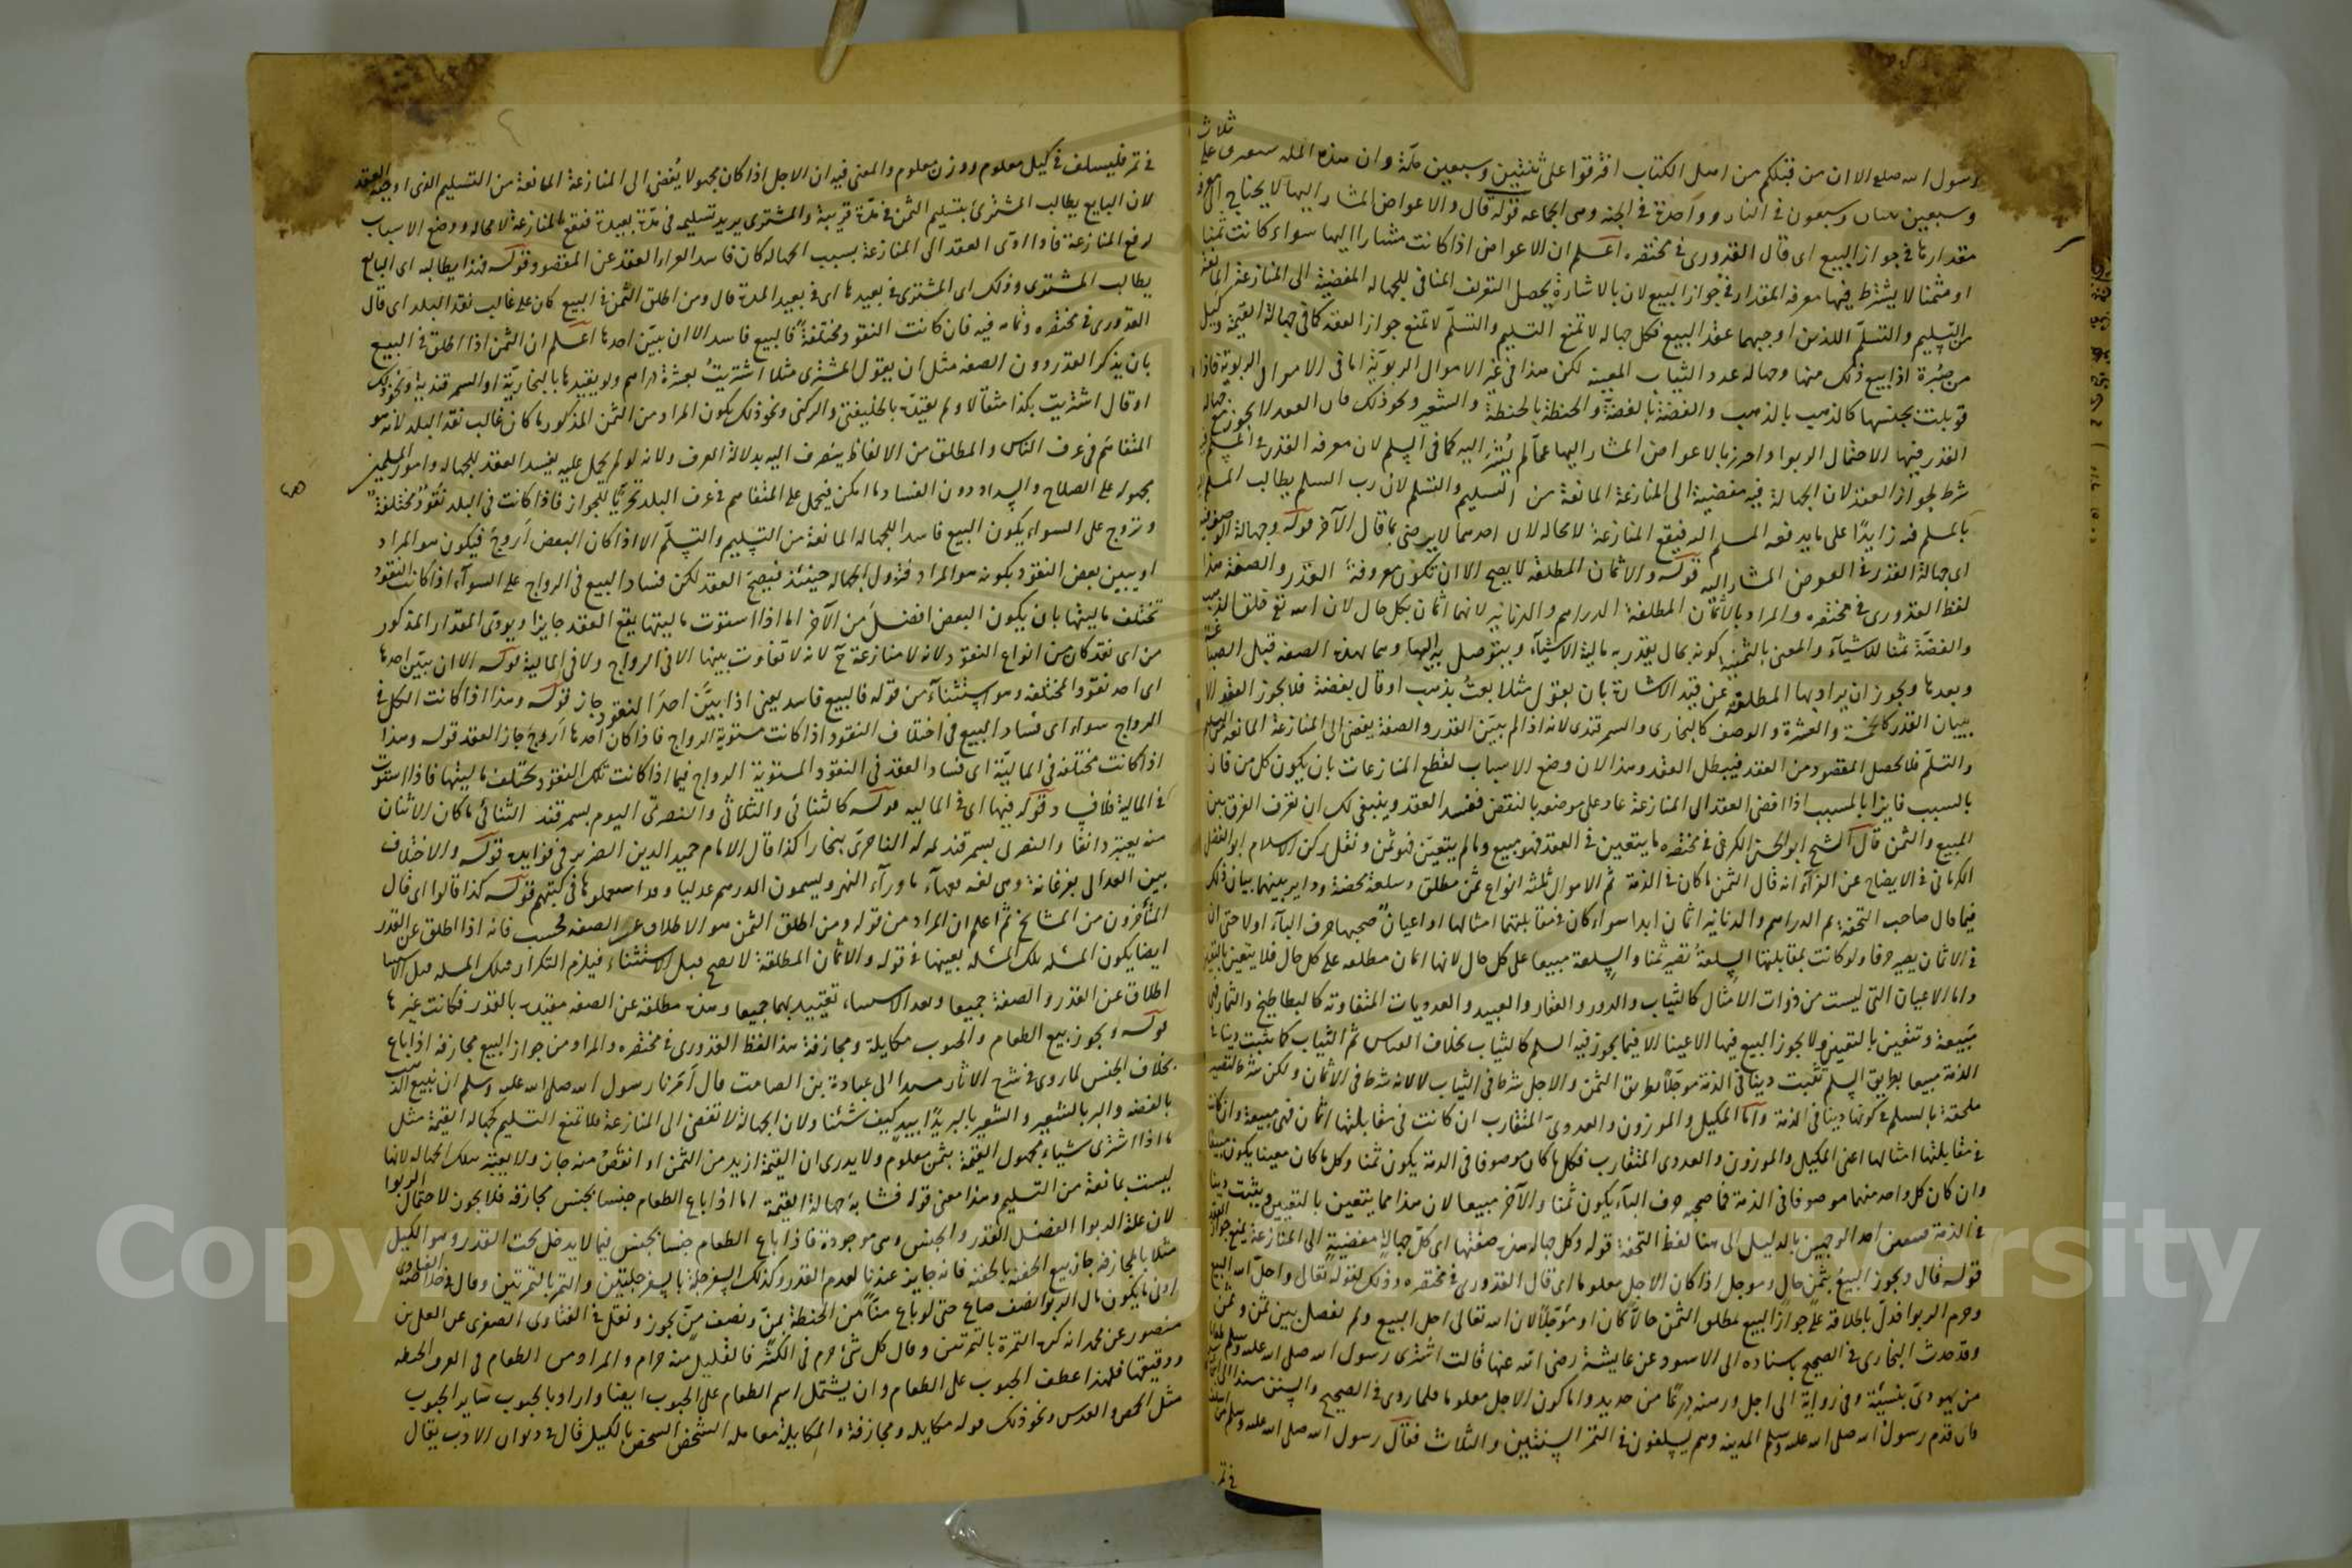 رسول الله صلع الا ان من قبلكم من اهل الكتاب افترقوا على ثنتين وسبعين ملة وان هذه الملة ستفترق على ثلاث
وسبعين ثنتان وسبعون في النار وواحدة في الجنة وهي الجماعة قوله قال والاعواض المشار اليها لا يحتاج الى معرفة
مقدارها في جواز البيع اى قال القدورى في مختصره اعلم ان الاعواض اذا كانت مشارا اليها سواء كانت ثمنا
او مثمنا لا يشترط فيها معرفة المقدار في جواز البيع لان بالاشارة يحصل التعريف المنافي للجهالة المفضية الى المنازعة المانعة
من التسليم والتسلم اللذين اوجبهما عقد البيع فكل جهالة لا تمنع التسليم والتسلم لا تمنع جواز العقد كما في جهالة القيمة وكيل
من صبرة اذا بيع ذلك منها وجهالة عدد الثياب المعينة لكن هذا في غير الاموال الربوية اما في الاموال الربوية فاذا
قوبلت بجنسها كالذهب بالذهب والفضة بالفضة والحنطة بالحنطة والشعير ونحو ذلك فان العقد لا يجوز مع جهالة
القدر فيها لاحتمال الربوا واحترز بالاعواض المشار اليها عما لم يشر اليه كما في السلم لان معرفة القدر في المسلم فيه
شرط لجواز العقد لان الجهالة فيه مفضية الى المنازعة المانعة من التسليم والتسلم لان رب السلم يطالب المسلم اليه
بالمسلم فيه زايدا على ما يدفعه المسلم اليه فيقع المنازعة لا محالة لان احدهما لا يرضى بما قال الآخر قوله وجهالة الوصف فيه
اى جهالة القدر في العوض المشار اليه قوله والاثمان المطلقة لا يصح الا ان تكون معروفة القدر والصفة هذا
لفظ القدورى في مختصره والمراد بالاثمان المطلقة الدراهم والدنانير لانها اثمان بكل حال لان الله تع خلق الذهب
والفضة ثمنا للاشياء والمعنى بالثمنية كونه بمال يقدر به مالية الاشياء ويتوصل به اليها وهما بهذه الصفة قبل الصياغة
وبعدها ويجوز ان يراد بها المطلقة عن قيد الاشارة بان يقول مثلا بعت بذهب او قال بفضة فلا يجوز العقد الا
ببيان القدر كالخمسة والعشرة والوصف كالبخارى والسمرقندى لانه اذا لم يبين القدر والصفة يفضى الى المنازعة المانعة من التسليم
والتسلم فلا يحصل المقصود من العقد فيبطل العقد وهذا لان وضع الاسباب لقطع المنازعات بان يكون كل من قاز
بالسبب فايزا بالمسبب اذا افضى العقد الى المنازعة عاد على موضوعه بالنقض ففسد العقد وينبغى لك ان تعرف الفرق بين
المبيع والثمن قال الشيخ ابو الحسن الكرخى في مختصره ما يتعين في العقد فهو مبيع وما لم يتعين فهو ثمن ونقل ركن الاسلام ابو الفضل
الكرمانى في الايضاح عن الفراء انه قال الثمن ما كان في الذمة ثم الاموال ثلثة انواع ثمن مطلق وسلعة محضة وداير بينهما بيان ذلك
فيما قال صاحب التحفة ثم الدراهم والدنانير اثمان ابدا سواء كان في مقابلتها امثالها او اعيان صحبها حرف الباء اولا حتى ان
في الاثمان يصير صرفا ولو كانت بمقابلتها السلعة تصير ثمنا والسلعة مبيعا على كل حال لانها اثمان مطلقة على كل حال فلا يتعين بالتعيين
واما الاعيان التى ليست من ذوات الامثال كالثياب والدور والعقار والعبيد والعدديات المتفاوتة كالبطاطيخ والثمار فهى
مبيعة وتتعين بالتعيين ولا يجوز البيع فيها الا عينا الا فيما يجوز فيه السلم كالثياب بخلاف القياس ثم الثياب كما يثبت دينا في
الذمة مبيعا بطريق السلم تثبت دينا في الذمة موجلا بطريق الثمن والاجل شرط في الثياب لا لانه شرط في الاثمان ولكن شرط لتصير
ملحقة بالسلم في كونها دينا في الذمة واما المكيل والموزون والعددى المتقارب ان كانت في مقابلتها اثمان فهى مبيعة وان كانت
في مقابلتها امثالها اعنى المكيل والموزون والعددى المتقارب فكل ما كان موصوفا في الذمة يكون ثمنا وكل ما كان معينا يكون مبيعا
وان كان كل واحد منهما موصوفا في الذمة فما صحبه حرف الباء يكون ثمنا والآخر مبيعا لان هذا مما يتعين بالتعيين ويثبت دينا
في الذمة فتعين احد الوجهين بالدليل الى هنا لفظ التحفة قوله وكل جهالة هذه صفتها اى كل جهالة مفضية الى المنازعة يمنع جواز العقد
قوله قال ويجوز البيع بثمن حال ومؤجل اذا كان الاجل معلوما اى قال القدورى في مختصره وذلك لقوله تعالى واحل الله البيع
وحرم الربوا فدل باطلاقه على جواز البيع بمطلق الثمن حالا كان او مؤجلا لان الله تعالى احل البيع ولم يفصل بين ثمن وثمن
وقد حدث البخارى في الصحيح باسناده الى الاسود عن عايشة رضى الله عنها قالت اشترى رسول الله صلى الله عليه وسلم طعاما
من يهودى بنسيئة وفي رواية الى اجل ورهنه درعا من حديد واما كون الاجل معلوما فلما روى في الصحيح والسنن مسندا الى ابن عباس
قال قدم رسول الله صلى الله عليه وسلم المدينة وهم يسلفون في التمر السنتين والثلاث فقال رسول الله صلى الله عليه وسلم من اسلف
في تمر
في تمر فليسلف في كيل معلوم ووزن معلوم والمعنى فيه ان الاجل اذا كان مجهولا يفضى الى المنازعة المانعة من التسليم الذى اوجبه العقد
لان البايع يطالب المشترى بتسليم الثمن في مدة قريبة والمشترى يريد تسليمه في مدة بعيدة فتقع المنازعة لا محالة ووضع الاسباب
لرفع المنازعة فاذا ادى العقد الى المنازعة بسبب الجهالة كان فاسدا لعراء العقد عن المقصود قوله فهذا يطالبه اى البايع
يطالب المشترى وذلك اى المشترى في بعيدها اى في بعيد المدة قال ومن اطلق الثمن في البيع كان على غالب نقد البلد اى قال
القدورى في مختصره وتمامه فيه فان كانت النقود مختلفة فالبيع فاسد الا ان يبين احدها اعلم ان الثمن اذا اطلق في البيع
بان يذكر القدر دون الصفة مثل ان يقول المشترى مثلا اشتريت بعشرة دراهم ولم يقيدها بالبخارية او السمرقندية ونحو ذلك
او قال اشتريت بكذا مثقالا ولم يقيده بالخليفتى والركنى ونحو ذلك يكون المراد من الثمن المذكور ما كان غالب نقد البلد لانه هو
المتفاهم في عرف الناس والمطلق من الالفاظ ينصرف اليه بدلالة العرف ولانه لو لم يحمل عليه يفسد العقد للجهالة وامور المسلمين
محمولة على الصلاح والسداد دون الفساد ما امكن فيحمل على المتفاهم في عرف البلد تحريا للجواز فاذا كانت في البلد نقود مختلفة
وتروج على السواء يكون البيع فاسدا للجهالة المانعة من التسليم والتسلم الا اذا كان البعض اروج فيكون هو المراد
او يبين بعض النقود بكونه هو المراد فتزول الجهالة حينئذ فيصح العقد لكن فساد البيع في الرواج على السواء اذا كانت النقود
تختلف ماليتها بان يكون البعض افضل من الآخر اما اذا استوت ماليتها يقع العقد جايزا ويودى المقدار المذكور
من اى نقد كان من انواع النقود ولانه لا منازعة ح لانه لا تفاوت بينها لا في الرواج ولا في المالية قوله الا ان يبين احدها
اى احد نقود المختلفة وهو استثناء من قوله فالبيع فاسد يعنى اذا بين احد النقود جاز قوله وهذا اذا كانت الكل في
الرواج سواء اى فساد البيع في اختلاف النقود اذا كانت مستوية الرواج فاذا كان احدها اروج جاز العقد قوله وهذا
اذا كانت مختلفة في المالية اى فساد العقد في النقود المستوية الرواج فيما اذا كانت تلك النقود تختلف ماليتها فاذا استوت
في المالية فلا فساد وقوله فيها اى في المالية قوله كالثنائى والثلاثى والنصرتى اليوم بسمرقند الثنائى ما كان الاثنان
منه يعتبر دانقا والنصرتى بسمرقند بمنزلة الناصرى ببخارا كذا قال الامام حميد الدين الضرير في فوايده قوله والاختلاف
بين العدالى بفرغانة وهى لغة فقهاء ما وراء النهر ويسمون الدرهم عدليا وقد استعملوها في كتبهم قوله كذا قالوا اى قال
المتأخرون من المشايخ ثم اعلم ان المراد من قوله ومن اطلق الثمن هو الاطلاق عن الصفة فحسب فانه اذا اطلق عن القدر
ايضا يكون المسئلة تلك المسئلة بعينها في قوله والاثمان المطلقة لا يصح قبل الاستثناء فيلزم التكرار فتلك المسئلة قبل الاستثناء
اطلاق عن القدر والصفة جميعا وبعد الاستثناء تقييد بهما جميعا وهذه مطلقة عن الصفة مقيدة بالقدر فكانت غيرها
قوله ويجوز بيع الطعام والحبوب مكايلة ومجازفة هذا لفظ القدورى في مختصره والمراد من جواز البيع مجازفة اذا باع
بخلاف الجنس لما روى في شرح الاثار مسندا الى عبادة بن الصامت قال امرنا رسول الله صلى الله عليه وسلم ان نبيع الذهب
بالفضة والبر بالشعير والشعير بالبر يدا بيد كيف شئنا ولان الجهالة لا تفضى الى المنازعة فلا تمنع التسليم كجهالة القيمة مثل
ما اذا اشترى شياء مجهول القيمة بثمن معلوم ولا يدرى ان القيمة ازيد من الثمن او انقص منه جاز ولا يعتبر بتلك الجهالة لانها
ليست بمانعة من التسليم وهذا معنى قوله فشابه جهالة القيمة اما اذا باع الطعام جنسا بجنس مجازفة فلا يجوز لاحتمال الربوا
لان علة الربوا الفضل القدر والجنس وهى موجودة فاذا باع الطعام جنسا بجنس فيما لا يدخل تحت القدر وهو الكيل
مثلا بالمجازفة جاز بيع الحفنة بالحفنة فانه جايز عندنا لعدم القدر وكذلك السفرجلة بالسفرجلتين والتمر بالتمرتين وقال في خلاصة الفتاوى
ادنى ما يكون مال الربوا نصف صاع حتى لو باع منا من الحنطة بمن ونصف من يجوز ونقل في الفتاوى الصغرى عن المعلى بن
منصور عن محمد انه كره التمرة بالتمرتين وقال كل شئ حرم في الكثير فالقليل منه حرام والمراد من الطعام في العرف الحنطة
ودقيقها فلهذا عطف الحبوب على الطعام وان يشتمل اسم الطعام على الحبوب ايضا واراد بالحبوب ساير الحبوب
مثل الحمص والعدس ونحو ذلك قوله مكايلة ومجازفة والمكايلة معاملة الشخص الشخص بالكيل قال في ديوان الادب يقال
Copyright © King Saud University